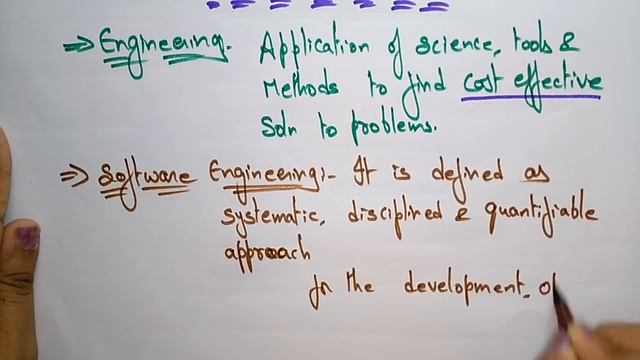 ⇒ Engineering. Application of science, tools &
Methods to find cost effective
Soln to problems.
⇒ Software Engineering:- It is defined as
systematic, disciplined & quantifiable
approach
for the development of